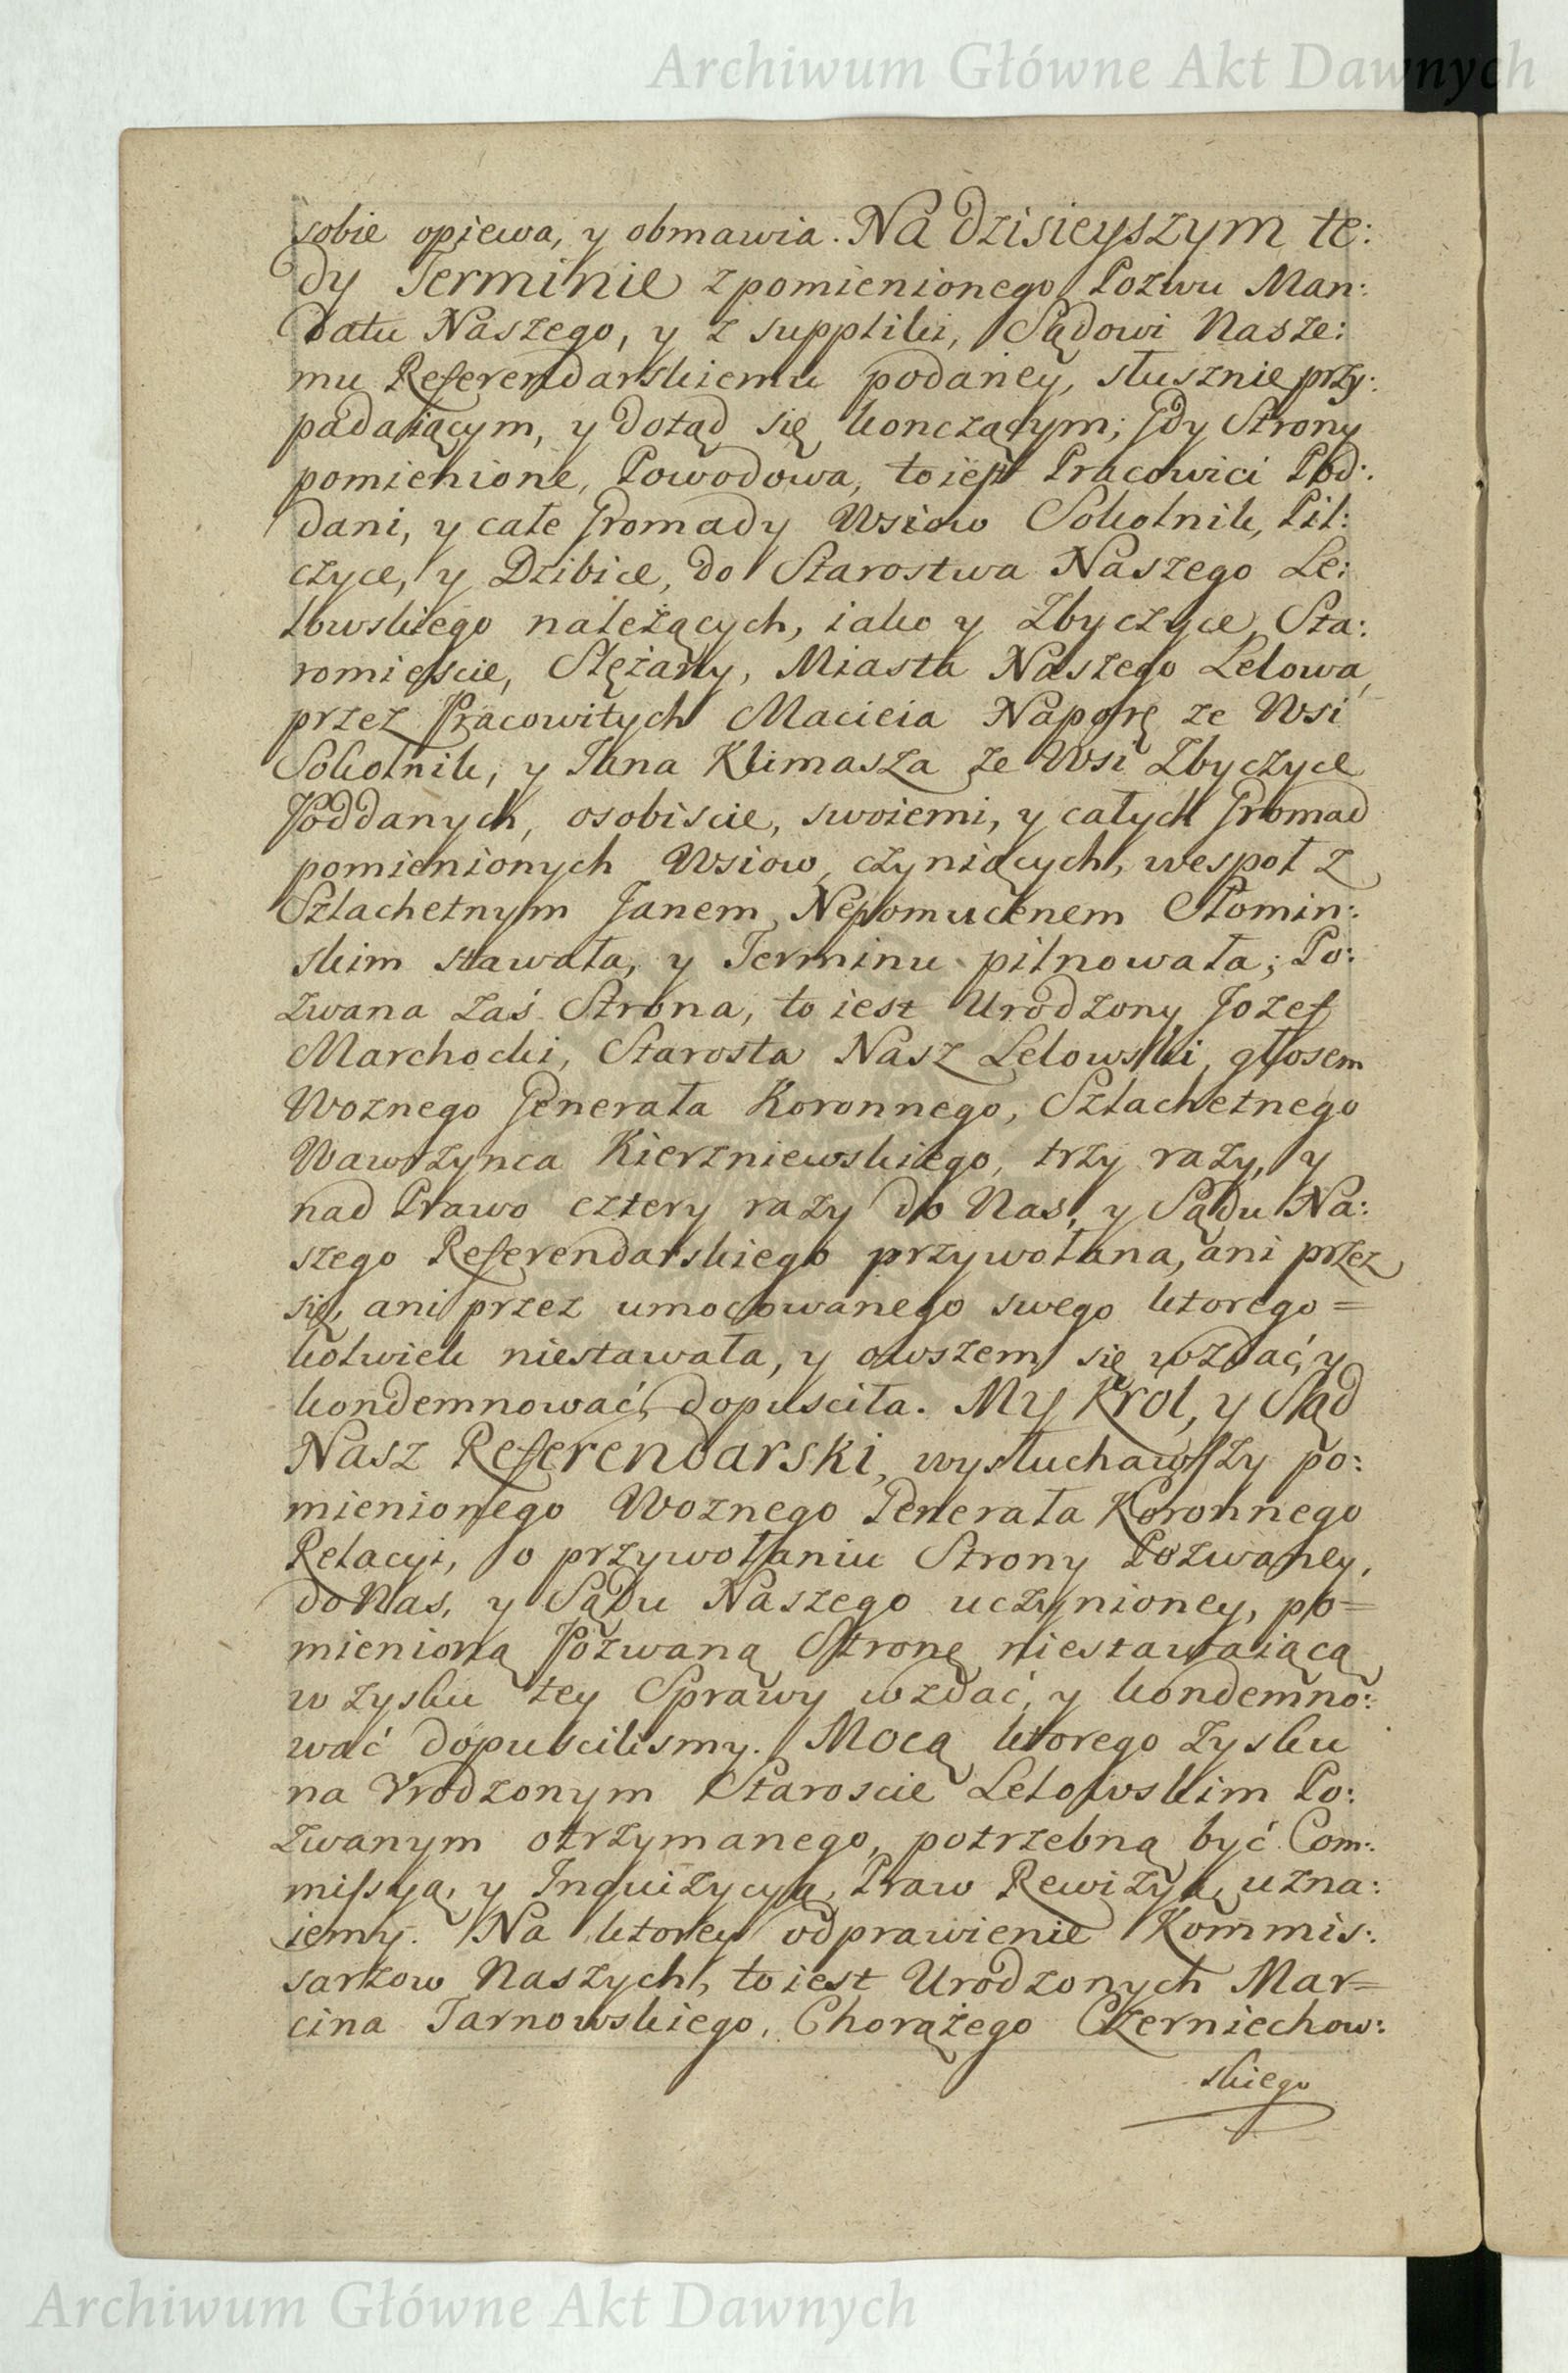 Archiwum Główne Akt Dawnych
sobie opiewa, y obmawia. Na dzisieyszym te:
dy Terminie z pomienionego Pozwu Man:
datu Naszego, y z suppliki, Sądowi Nasze:
mu Referendarskiemu podaney, słusznie przy:
padaiącym, y dotąd się konczącym; Gdy Strony
pomienione, Powodowa, to iest Pracowici Pod:
dani, y całe Gromady Wsiow Sokolnik, Pil:
czyce, y Dzibice, do Starostwa Naszego Le:
lowskiego należących, iako y Zbyczyce, Sta:
romieście, Slężany, Miasta Naszego Lelowa,
przez Pracowitych Macieia Naporę ze Wsi
Sokolnik, y Jana Klimasza ze Wsi Zbyczyce
Poddanych, osobiscie, swoiemi, y całych Gromad
pomienionych Wsiow, czyniących, wespoł z
Szlachetnym Janem Nepomucenem Słomin:
skim stawała, y Terminu pilnowała; Po:
zwana zaś Strona, to iest Urodzony Jozef
Marchocki, Starosta Nasz Lelowski, głosem
Woznego Generała Koronnego, Szlachetnego
Wawrzynca Kierzniewskiego, trzy razy, y
nad Prawo cztery razy do Nas, y Sądu Na:
szego Referendarskiego przywołana, ani przez
się, ani przez umocowanego swego ktorego=
kolwiek niestawała, y owszem się wzdać, y
kondemnować, dopusciła. My Krol, y Sąd
Nasz Referendarski, wysłuchawszy po:
mienionego Woznego Generała Koronnego
Relacyi, o przywołaniu Strony Pozwaney,
do Nas, y Sądu Naszego uczynioney, po=
mienioną Pozwaną Stronę niestawaiącą
w zysku tey Sprawy wzdać, y kondemno:
wać dopuscilismy. Mocą ktorego zysku
na Vrodzonym Staroscie Lelowskim Po:
zwanym otrzymanego, potrzebną być Com:
missyą, y Inquizycyą, Praw Rewizyą, uzna:
iemy. Na ktorey odprawienie Kommis:
sarzow Naszych, to iest Urodzonych Mar=
cina Tarnowskiego, Chorążego Czerniechow:
skiego
Archiwum Główne Akt Dawnych